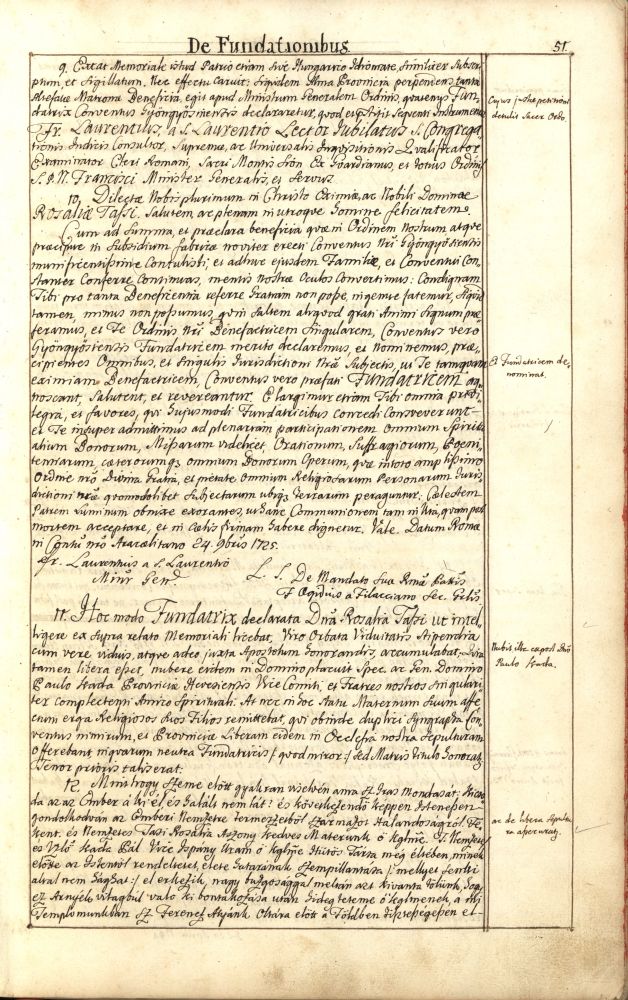 De Fundationibus
51
9. Extat Memoriale istud Patrio etiam sive Hungarico Idiomate, similiter Subscri-
ptum, et Sigillatum. Nec effectu caruit: siquidem Alma Provincia perpendens tanta
Matrona Beneficia, egit apud Ministrum Generalem Ordinis, quatenus Fun-
datrix Conventus Gyöngyösiensis declararetur, quod exstitit sequenti Instrumento
Fr. Laurentius, a S. Laurentio Lector Jubilatus S. Congrega-
tionis Indicis Consultor, Supremæ, ac Universalis Inquisitionis Qualificator
Examinator Cleri Romani, Sacri Montis Sion Ex Guardianus, et totius Ordinis
S. P. N. Francisci Minister Generalis, et Servus.
10. Dilectæ Nobis plurimum in Christo Eximiæ, ac Nobili Dominæ
Rosaliæ Tassi. Salutem, ac plenam in utroque homine felicitatem.
Cum ad Summa, et præclara beneficia quæ in Ordinem Nostrum, atque
præcipue in Subsidium fabricæ noviter erecti Conventus Nri Gyöngyösiensis
munificentissime Contulisti, et adhuc ejusdem Familiæ, et Conventui Con-
stanter Conferre Continuas, mentis nostræ Oculos Convertimus: Condignam
Tibi pro tanta Beneficentia referre Gratiam non posse, ingenue fatemur,
tamen minus non possumus, quin saltem aliquod grati Animi Signum præ-
feramus, et Te Ordinis Nri Benefactricem Singularem, Conventus vero
Gyöngyösiensis Fundatricem merito declaremus, et Nominemus, præ-
cipientes Omnibus, et singulis Jurisdictioni Nræ Subjectis, ut Te tamquam
eximiam Benefactricem, Conventus vero præfati Fundatricem ag-
noscant, Salutent, et revereantur. Elargimur etiam Tibi omnia privi-
legia, et favores, qui hujusmodi Fundatricibus concedi Consveverunt
et Te insuper admittimus ad plenariam participationem Omnium Spiritu-
alium Donorum, Missarum videlicet, Orationum, Suffragiorum, Poeni-
tentiarum, cæterorumq3 omnium Bonorum Operum, quæ in toto amplissimo
Ordine nro Divina Gratia, et pietate Omnium Religiosarum Personarum Juris-
dictioni nræ quomodolibet Subjectarum ubiq3 terrarum peraguntur. Cœlestem
Patrem enixe exorantes, ut hanc Communionem tam in Vita, quam post
mortem acceptare, et in cœlis firmam habere dignetur. Vale. Datum Romæ
in Contu nro Aracælitano 24. 9bris 1725.
Fr. Laurentius a S. Laurentio
Minr Genlis
L. S. De Mandato Suæ Rmæ Pattis
F. Egidius a Filacciano Sec. Grlis
11. Hoc modo Fundatrix declarata Dna Rosalia Tassi ut intel-
ligere ex supra relato Memoriali licebat, Viro Orbata Viduitatis Stipendia
cum vere viduis, atque adeo juxta Apostolum honorandis, accumulabat;
tamen libera esset, nubere eidem in Domino placuit Spec. ac Gen. Domino
Paulo Hada Provinciæ Hevesiensis Vice Comiti, et Fratres nostros singulari-
ter complectenti Amico Spirituali. At nec in hoc Statu Maternum suum affe-
ctum erga Religiosos suos Filios remittebat, qui obinde duplici Syngrapha Con-
ventus nimirum, et Provinciæ Literam eidem in Ecclesia nostra Sepulturam
offerebant, in quarum neutra Fundatricis /: quod miror :/ sed Matris titulo honorata
Tenor prioris talis erat.
12. Mint hogy Szeme elött gyakran viselvén ama Sz Iras Mondását:
da az az Ember a ki él, és halált nem lát? és következendö keppen Istenessen
gondolkodván az Emberi Nemzetre termeszetböl származot Halandoságrol Te-
kent. és Nemzetes Tasi Rosalia Aszony kedves Materunk ö kglme. T. Nemzetes
és Vitéz Hada Pál Vice Ispány Uram ö kglme Hütös Társa még éltében, minek
elötte az Istentöl rendeltetet, élete határának szempillantása /: mellyet senki
által nem hághat :/ el érkezik, nagy buzgosággal méltán azt kivánta tölünk, hogy
ez Arnyék világbúl való ki bontakozása után hideg teteme ö kglmenek, a mi
Templomunkban Sz Ferencz Atyánk Oltára elött a Földben tisztességesen el-
Cujus petitioni
detulit Sacer Ordo.
Et Fundatricem de-
nominat.
Nubit illæ expost Dno
Paulo Hada.
ac de libera sepultu-
ra assecuratur.